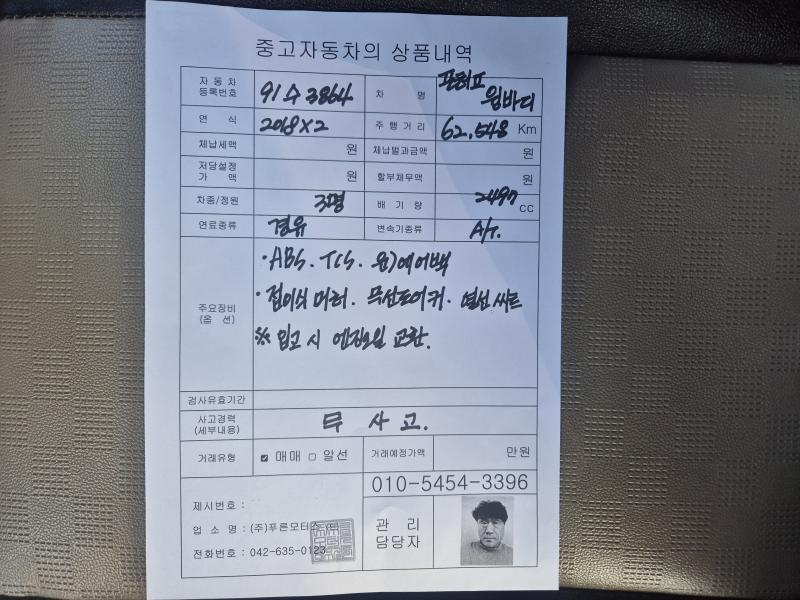 중고자동차의 상품내역
자동차 등록번호 91수3864 차 명 포터II 윙바디
연 식 2018×2 주행거리 62,548 Km
체납세액 원 체납벌과금액 원
저당설정 가 액 원 할부채무액 원
차종/정원 3명 배 기 량 2497 cc
연료종류 경유 변속기종류 A/T.
주요장비 (옵 션)
·ABS. TCS. 운)에어백
·접이식 미러. 무선도어키. 열선씨트
※ 입고시 엔진오일 교환.
검사유효기간
사고경력 (세부내용) 무 사 고.
거래유형 ☑ 매매 □ 알선 거래예정가액 만원
010-5454-3396
제시번호 :
업 소 명 : (주)푸른모터스
전화번호 : 042-635-0123
관 리
담당자